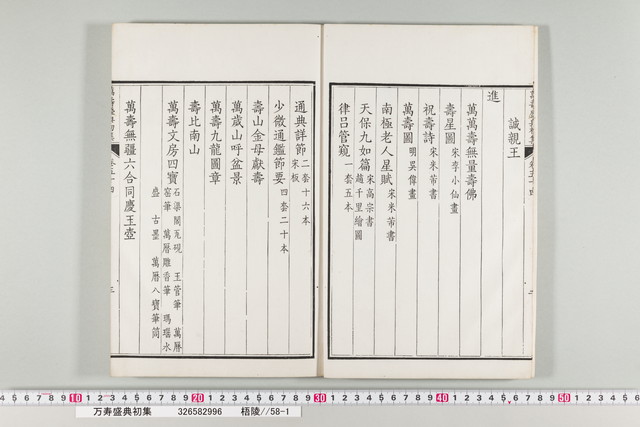 誠親王
進
萬萬壽無量壽佛
壽星圖 宋李小仙畫
祝壽詩 宋米芾書
萬壽圖 明吳偉畫
南極老人星賦 宋米芾書
天保九如篇 宋高宗書 趙千里繪圖
律呂管窺 一套五本
通典詳節 二套十六本 宋板
少微通鑑節要 四套二十本
壽山金母獻壽
萬歲山呼盆景
萬壽九龍圖章
壽比南山
萬壽文房四寶 石渠閣瓦硯 玉管筆 萬曆
窑筆 萬曆雕香筆 瑪瑙水
盛 古墨 萬曆八寶筆筒
萬壽無疆六合同慶玉壺
10 20 30 40 50
万寿盛典初集 326582996 梧陵//58-1